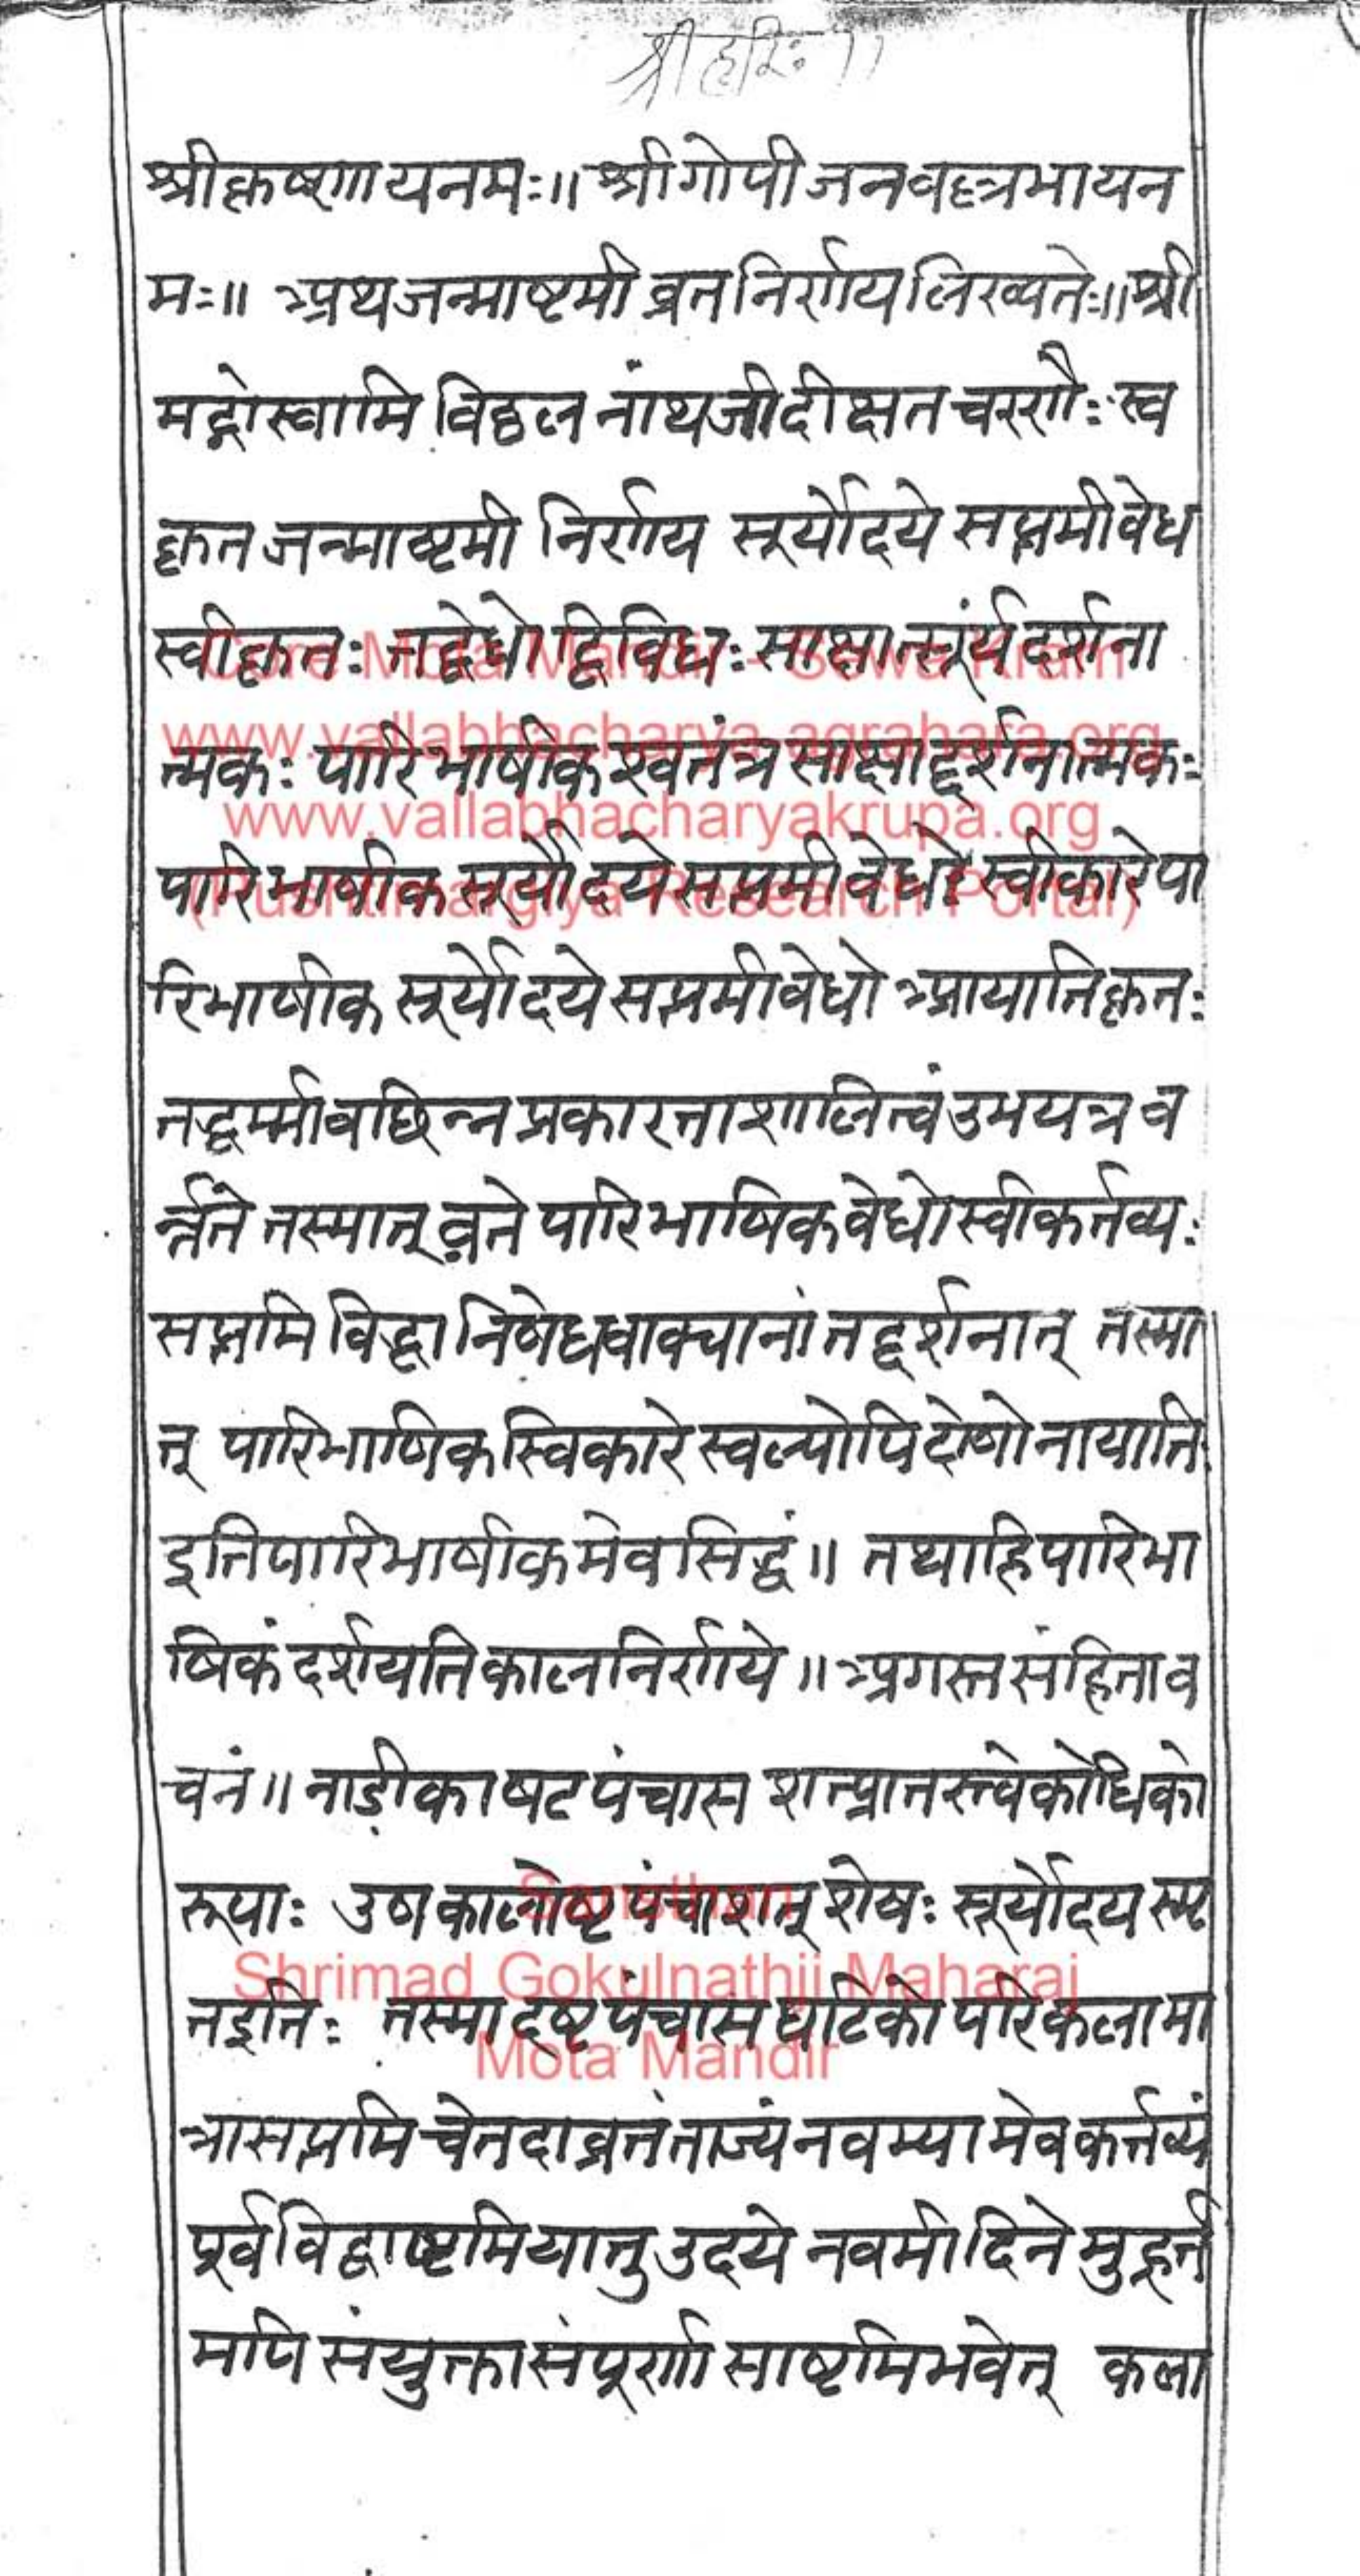 श्रीहरिः ॥
श्रीकृष्णायनमः॥ श्रीगोपीजनवल्लभायन
मः॥ अथजन्माष्टमीव्रतनिर्णयलिख्यतेः॥श्री
मद्गोस्वामिविठ्ठलनांथजीदीक्षतचरणैःस्व
कृतजन्माष्टमीनिर्णय सूर्योदये सप्तमीवेध
स्वीकृतः तद्वेधोद्विविधःसाक्षात्सूर्यदर्शना
त्मकः पारिभाषीकश्वतंत्रसाक्षाद्दर्शनात्मकः
पारिभाषीकसूर्योदयेसप्तमीवेधोस्वीकारेपा
रिभाषीकसूर्योदयेसप्तमीवेधोआयातिकृतः
तद्धर्म्मावछिन्नप्रकारत्ताशालित्वंउभयत्रव
र्त्तते तस्मात्व्रते पारिभाषिकवेधोस्वीकर्तव्यः
सप्तमिविद्धानिषेधवाक्यानांतद्दर्शनात् तस्मा
त् पारिभाषिकस्विकारे स्वल्पोपिदोषोनायाति
इतिपारिभाषीकमेवसिद्धं॥ तथाहिपारिभा
षिकंदर्शयतिकालनिर्णये॥अगस्तसंहिताव
चनं॥नाडीकाषटपंचास शत्प्रातस्त्वेकोधिको
रूपाः उषकालोष्टपंचाशत्शेषःसूर्योदयस्मृ
तइतिः तस्मादष्टपंचासघटिकोपरिकलामा
त्रासप्तमिचेतदाव्रतंताज्यंनवम्यामेवकर्त्तव्यं
पूर्वविद्धाष्टमियातुउदये नवमीदिनेमुहूर्त
मपिसंयुक्तासंपूर्णासाष्टमिभवेत् कला
Core Mota Mandir - Sewa Kram
www.vallabhacharya-agrahara.org
www.vallabhacharyakrupa.org
(Pushtimargiya Research Portal)
Sansthan
Shrimad Gokulnathji Maharaj
Mota Mandir